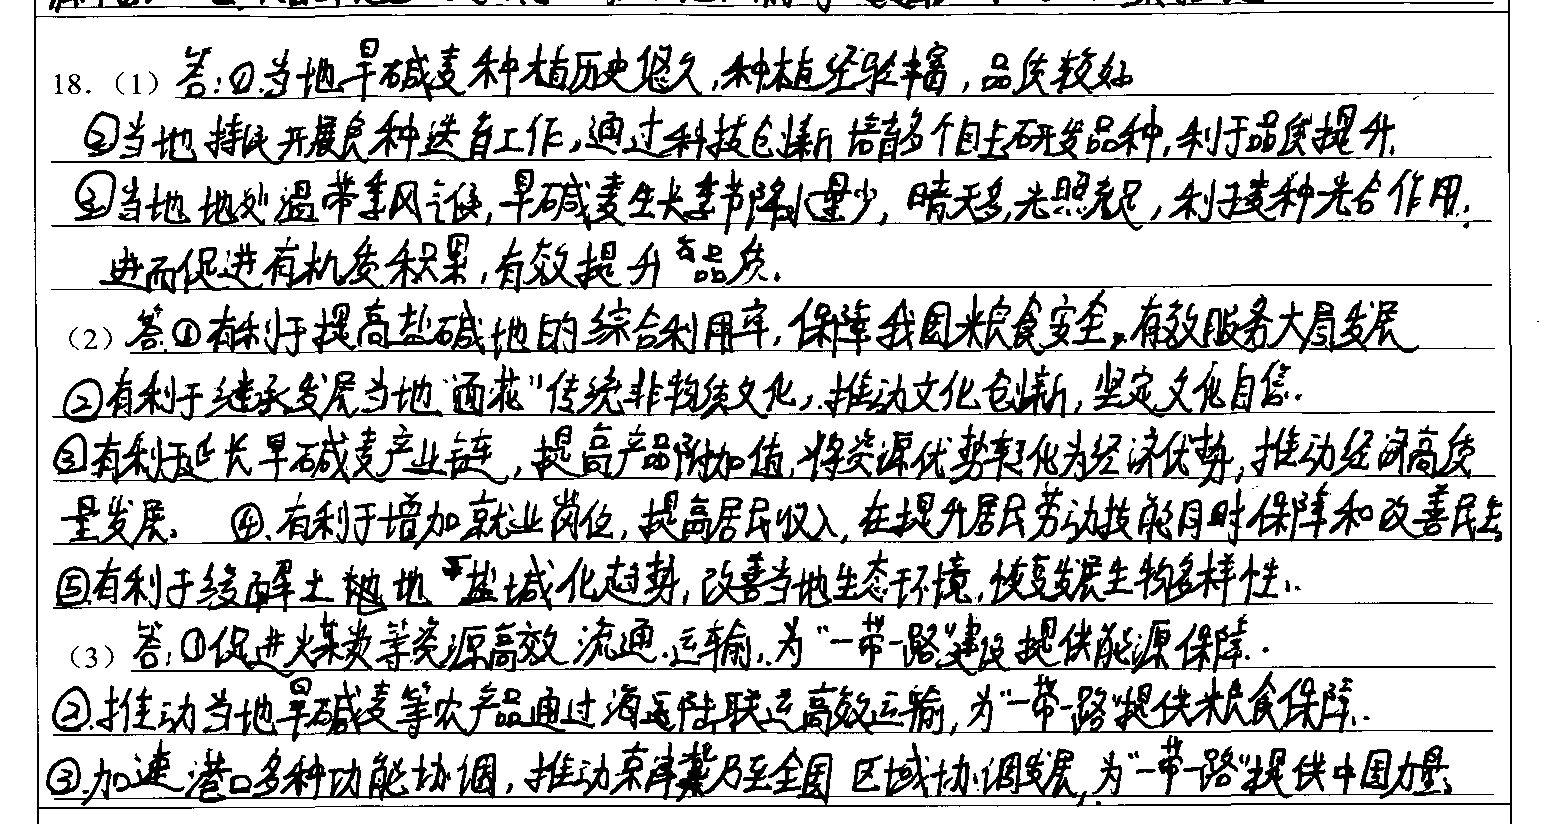 18.（1）答：①.当地旱碱麦种植历史悠久，种植经验丰富，品质较好
②当地持续开展良种选育工作，通过科技创新培育多个自主研发品种，利于品质提升.
③当地地处温带季风气候，旱碱麦生长季节降水量少，晴天多，光照充足，利于麦种光合作用.
进而促进有机质积累，有效提升品质.
（2）答①有利于提高盐碱地的综合利用率，保障我国粮食安全，有效服务大局发展
②有利于继承发展当地“面花”传统非物质文化，推动文化创新，坚定文化自信.
③有利于延长旱碱麦产业链，提高产品附加值，将资源优势转化为经济优势，推动经济高质
量发展。 ④.有利于增加就业岗位，提高居民收入，在提升居民劳动技能同时保障和改善民生
⑤有利于缓解土地地下盐碱化趋势，改善当地生态环境，恢复发展生物多样性.
（3）答：①促进煤炭等资源高效流通.运输，为“一带一路”建设提供能源保障.
②.推动当地旱碱麦等农产品通过海运陆联运高效运输，为“一带一路”提供粮食保障.
③.加速港口多种功能协调，推动京津冀乃至全国区域协调发展，为“一带一路”提供中国力量.